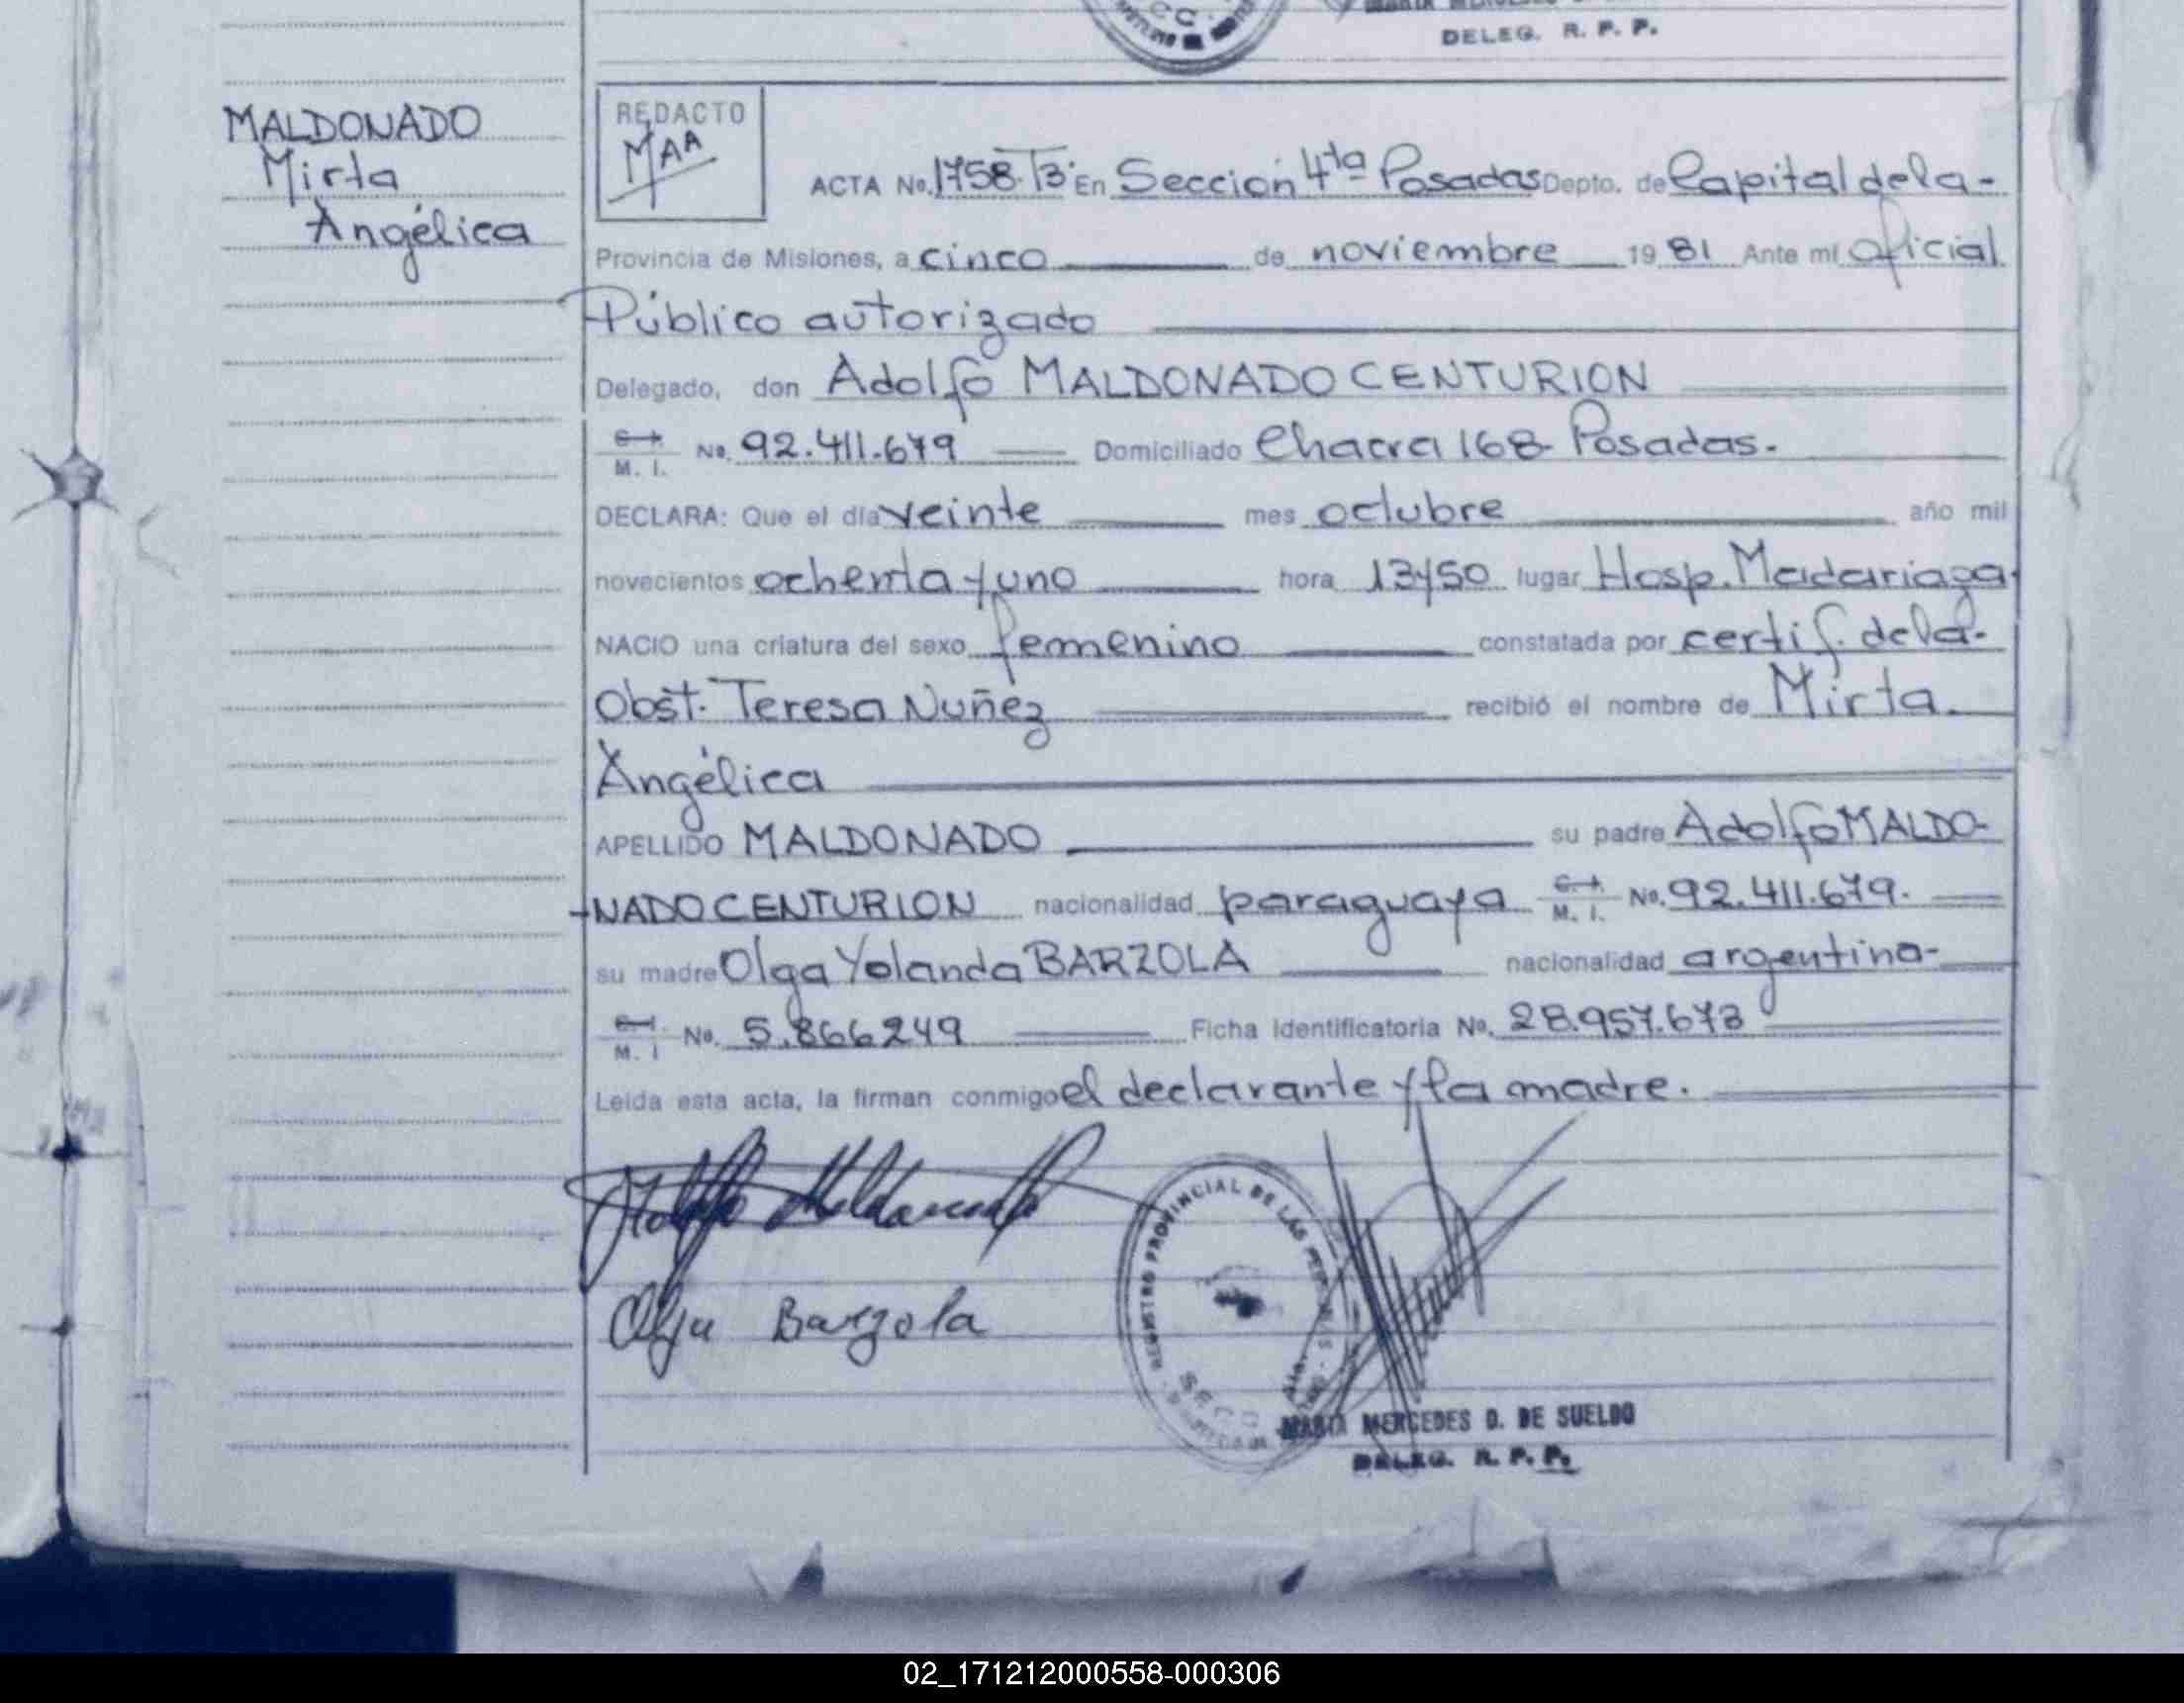 DELEG. R. P. P.
MALDONADO
Mirta
Angélica
REDACTO
MAA
ACTA No. 1758. T3· En Sección 4ta Posadas Depto. de Capital de la-
Provincia de Misiones, a cinco de noviembre 19 81 Ante mi Oficial
Público autorizado
Delegado, don Adolfo MALDONADO CENTURION
C. I.
M. I. No. 92.411.679 Domiciliado Chacra 168- Posadas.
DECLARA: Que el día veinte mes octubre año mil
novecientos ochenta y uno hora 13y50 lugar Hosp. Madariaga
NACIO una criatura del sexo femenino constatada por certif. de la-
Obst. Teresa Nuñez recibió el nombre de Mirta
Angélica
APELLIDO MALDONADO su padre Adolfo MALDO-
-NADO CENTURION nacionalidad paraguaya C. I. M. I. No. 92.411.679.
su madre Olga Yolanda BARZOLA nacionalidad argentina-
C. I.
M. I No. 5.866249 Ficha Identificatoria No. 28.957.673
Leída esta acta, la firman conmigo el declarante y la madre.
Adolfo Maldonado
Olga Barzola
REGISTRO PROVINCIAL DE LAS PERSONAS
MARIA MERCEDES D. DE SUELDO
DELEG. R. P. P.
02_171212000558-000306